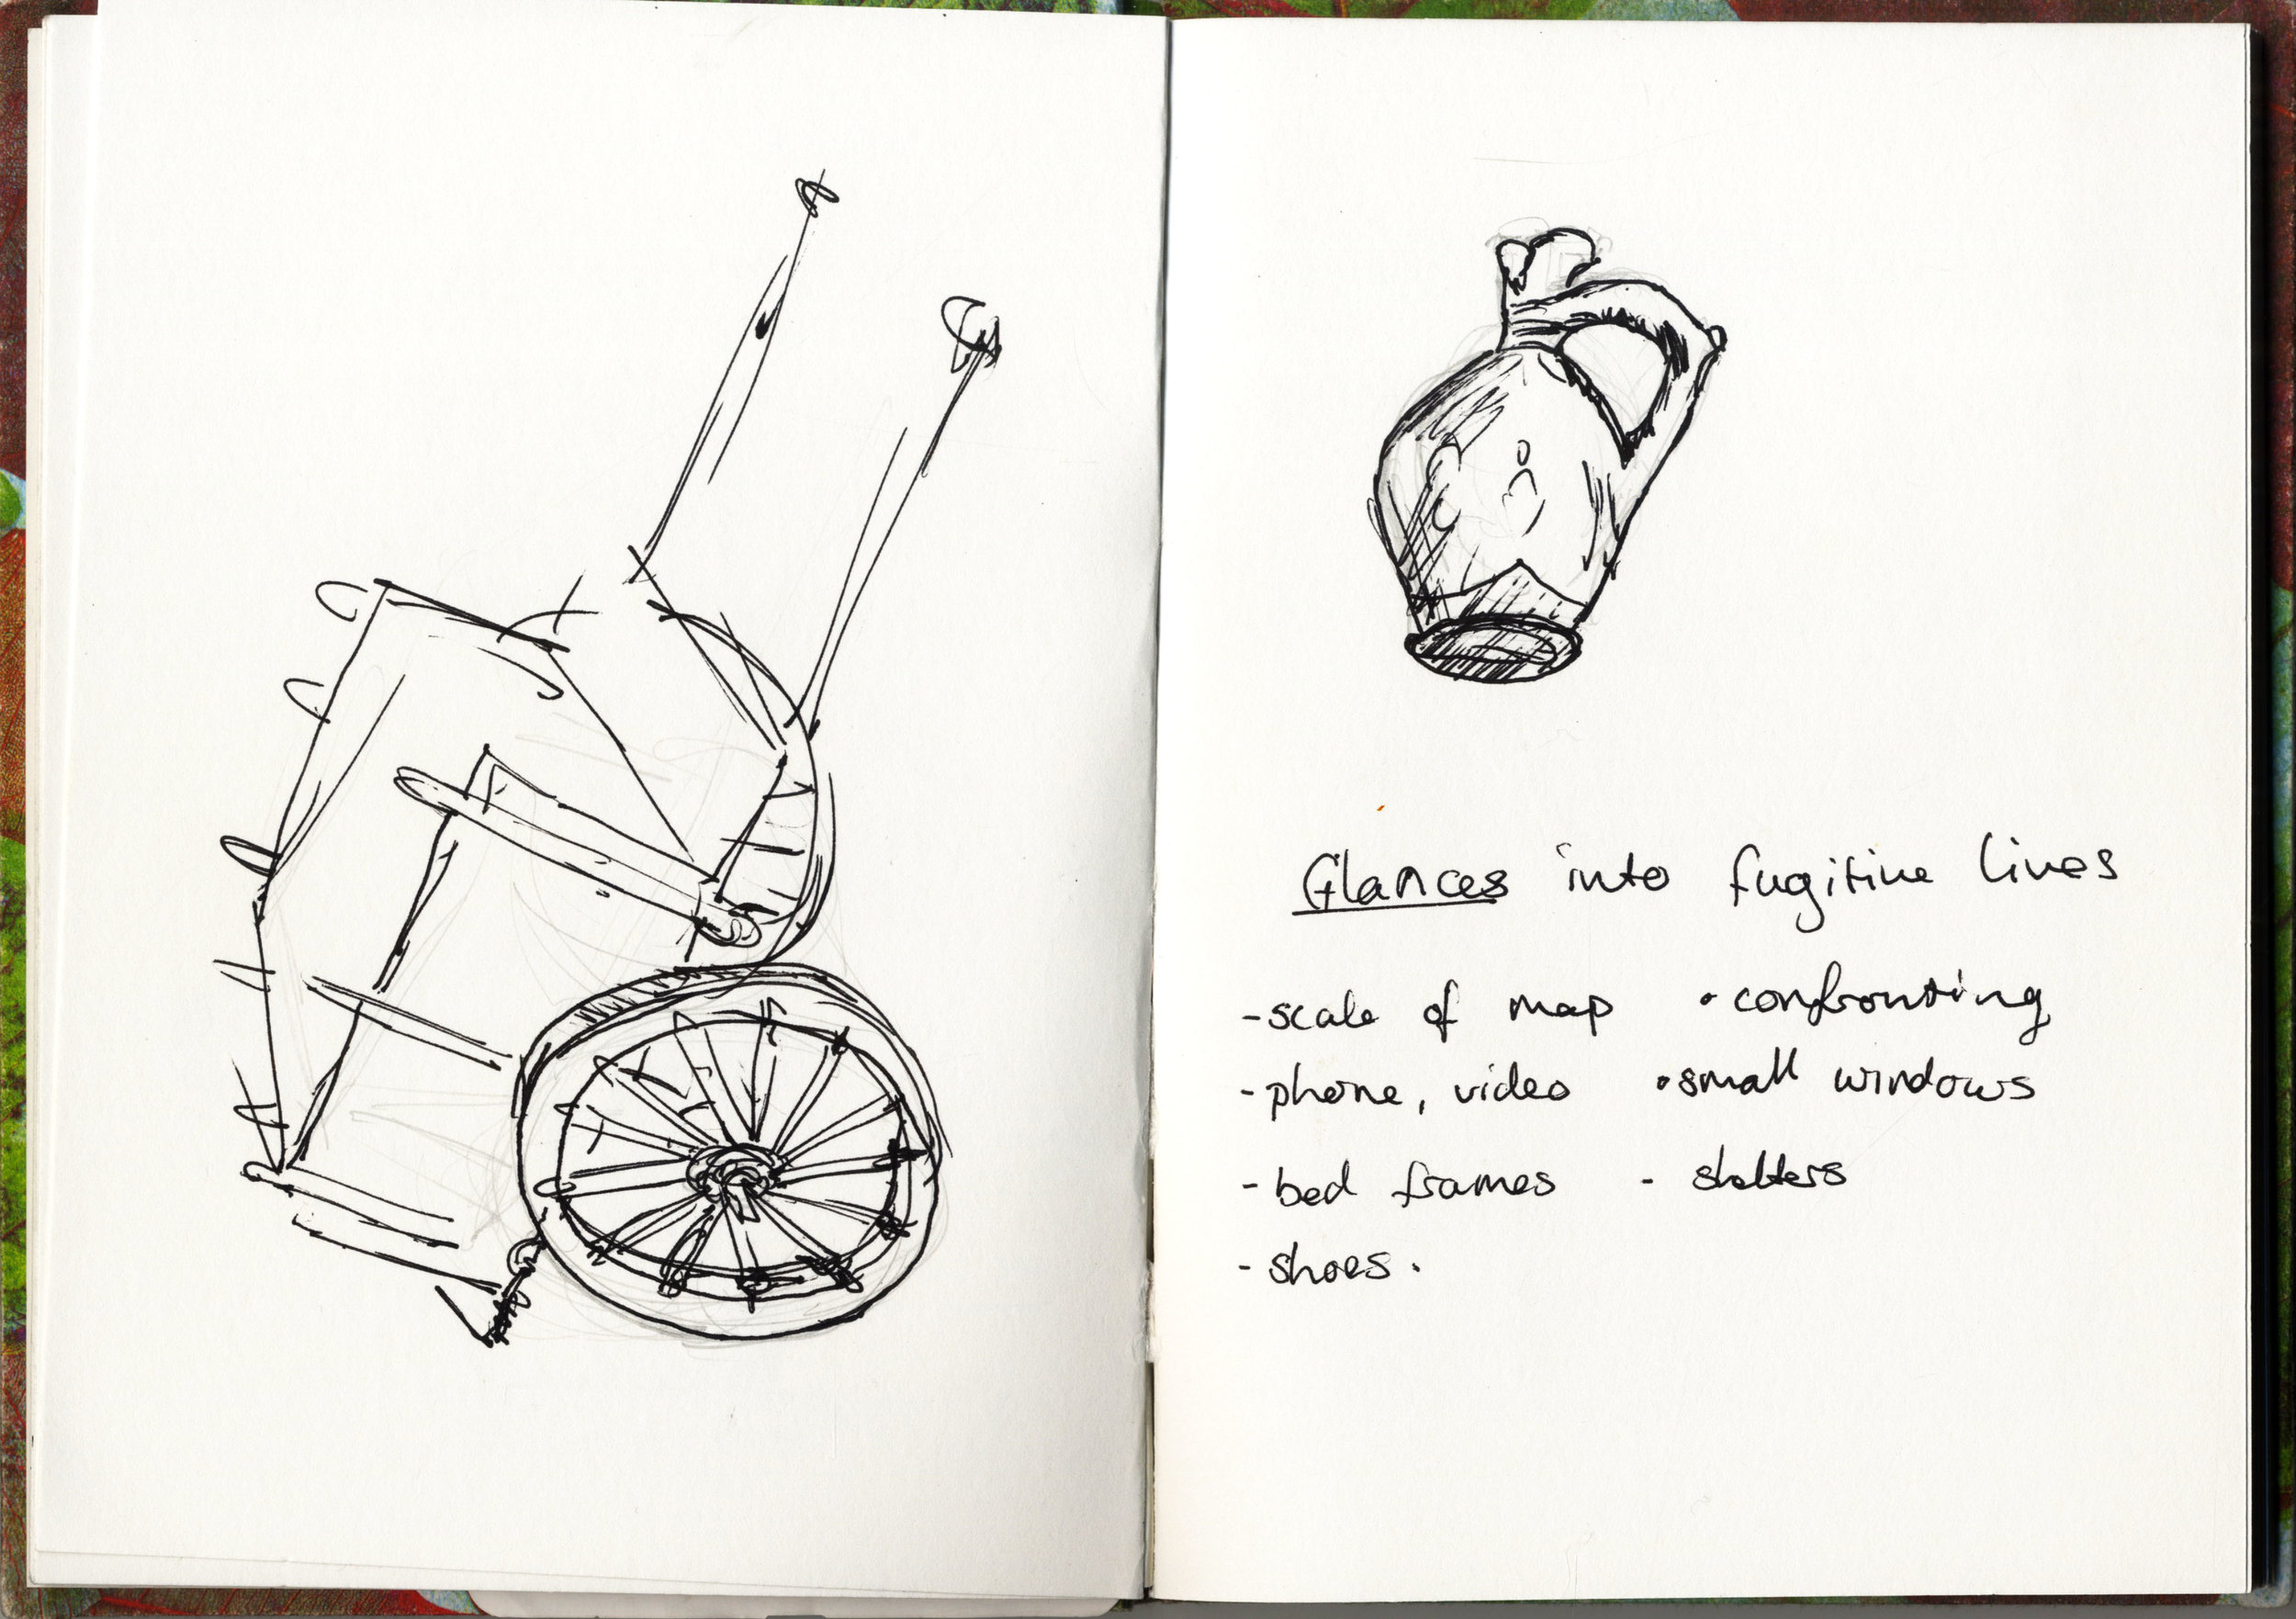 Glances into fugitive lives
- scale of map • confronting
- phone, video • small windows
- bed frames - shelters
- shoes.